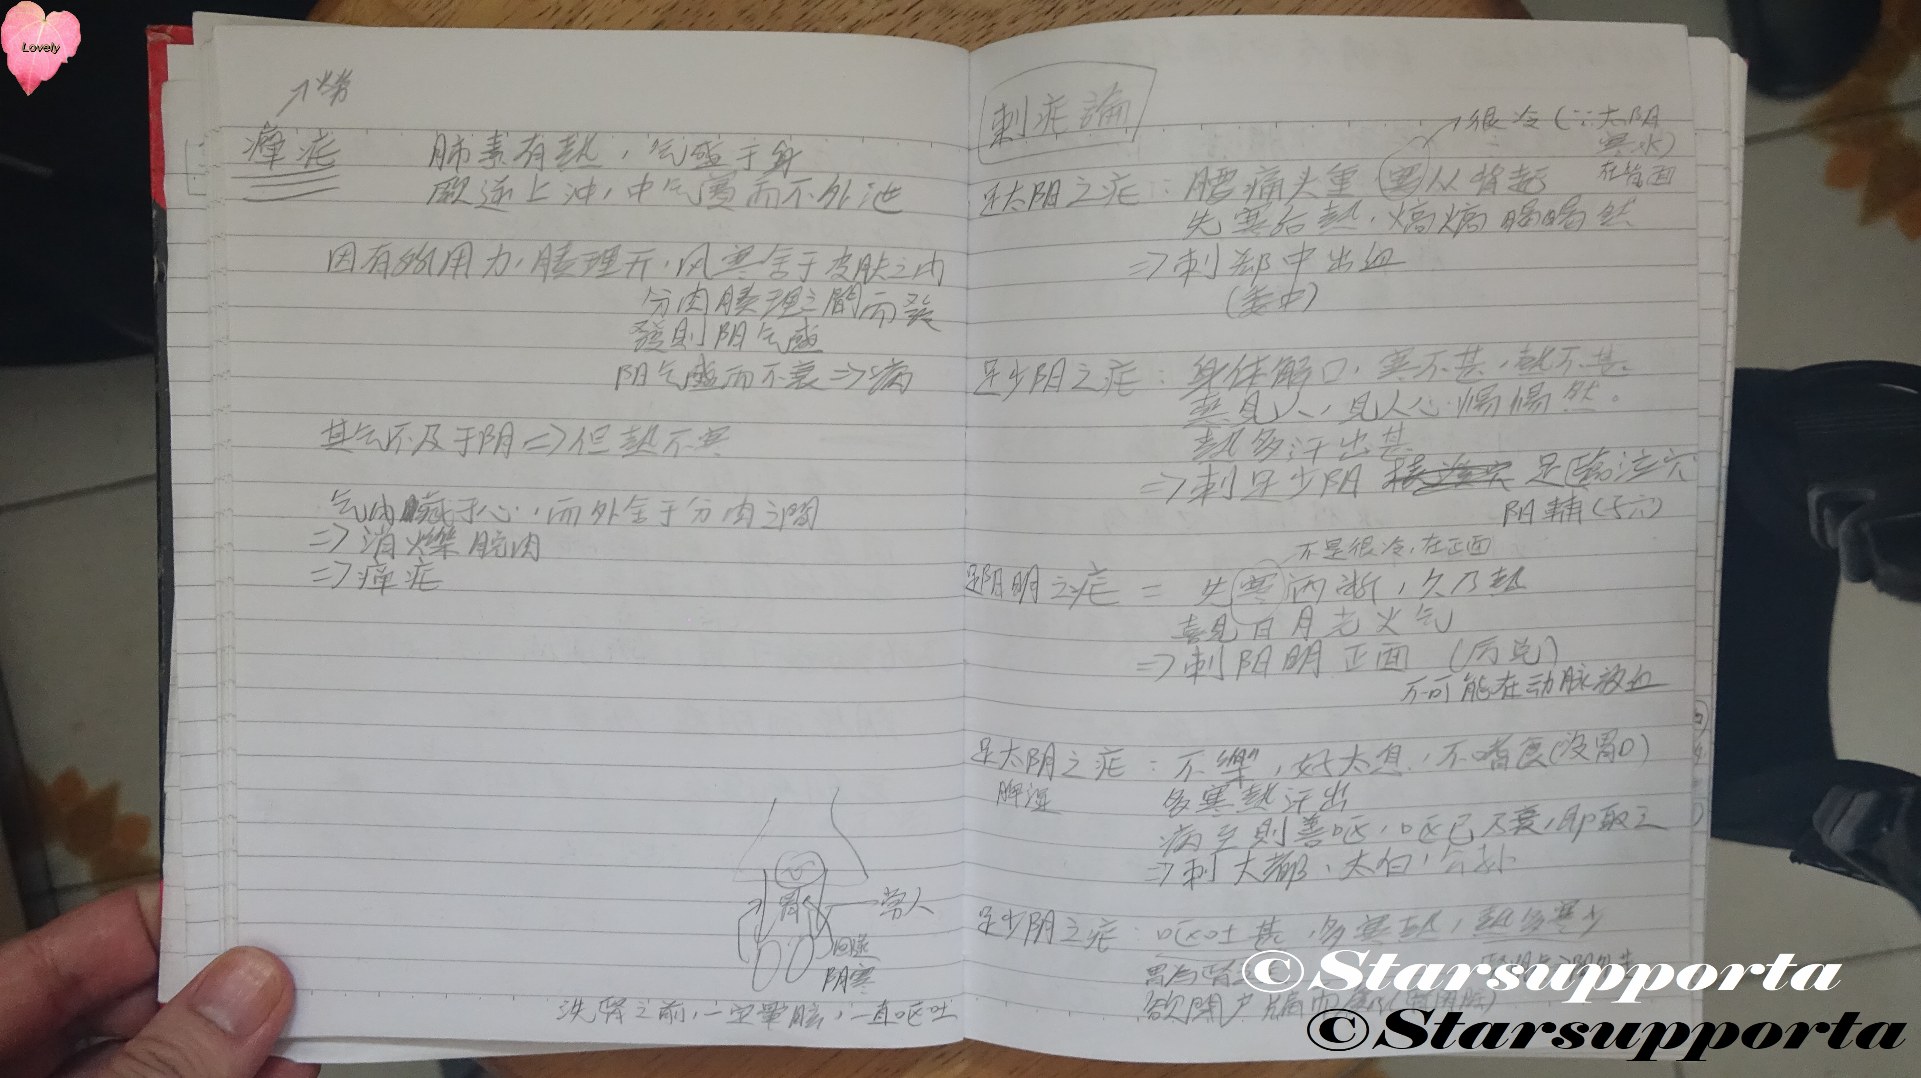 Lovely
瘅疟
肺素有热，气盛于身
厥逆上冲，中气實而不外泄
因有所用力，腠理开，风寒舍于皮肤之内
分肉腠理之間而發
發則阳气盛
阳气盛而不衰⇒病
其气不及于阴⇒但热不寒
气内藏于心，而外舍于分肉之間
⇒消爍脱肉
⇒瘅疟
胃
阴寒
洗腎之前，一定暈眩，一直呕吐
刺疟論
很冷(∵太阳
寒水)
在背面
足太阳之疟：腰痛头重，寒从背起
先寒后热，熇熇暍暍然
⇒刺郄中出血
(委中)
足少阳之疟：身体解㑊，寒不甚，热不甚
恶见人，见人心惕惕然。
热多汗出甚
⇒刺足少阳 足临泣穴
阳辅(ㄅ穴)
不是很冷，在正面
足阳明之疟＝先寒洒淅，久乃热
喜见日月光火气
⇒刺阳明正面(厉兑)
不可能在动脉放血
足太阴之疟：不樂，好太息，不嗜食(沒胃口)
脾濕
多寒热汗出
病至則善呕，呕已乃衰，即取之
⇒刺大都、太白、公孙
足少阴之疟：呕吐甚，多寒热，热多寒少
欲閉户牖而
©Starsupporta
©Starsupporta